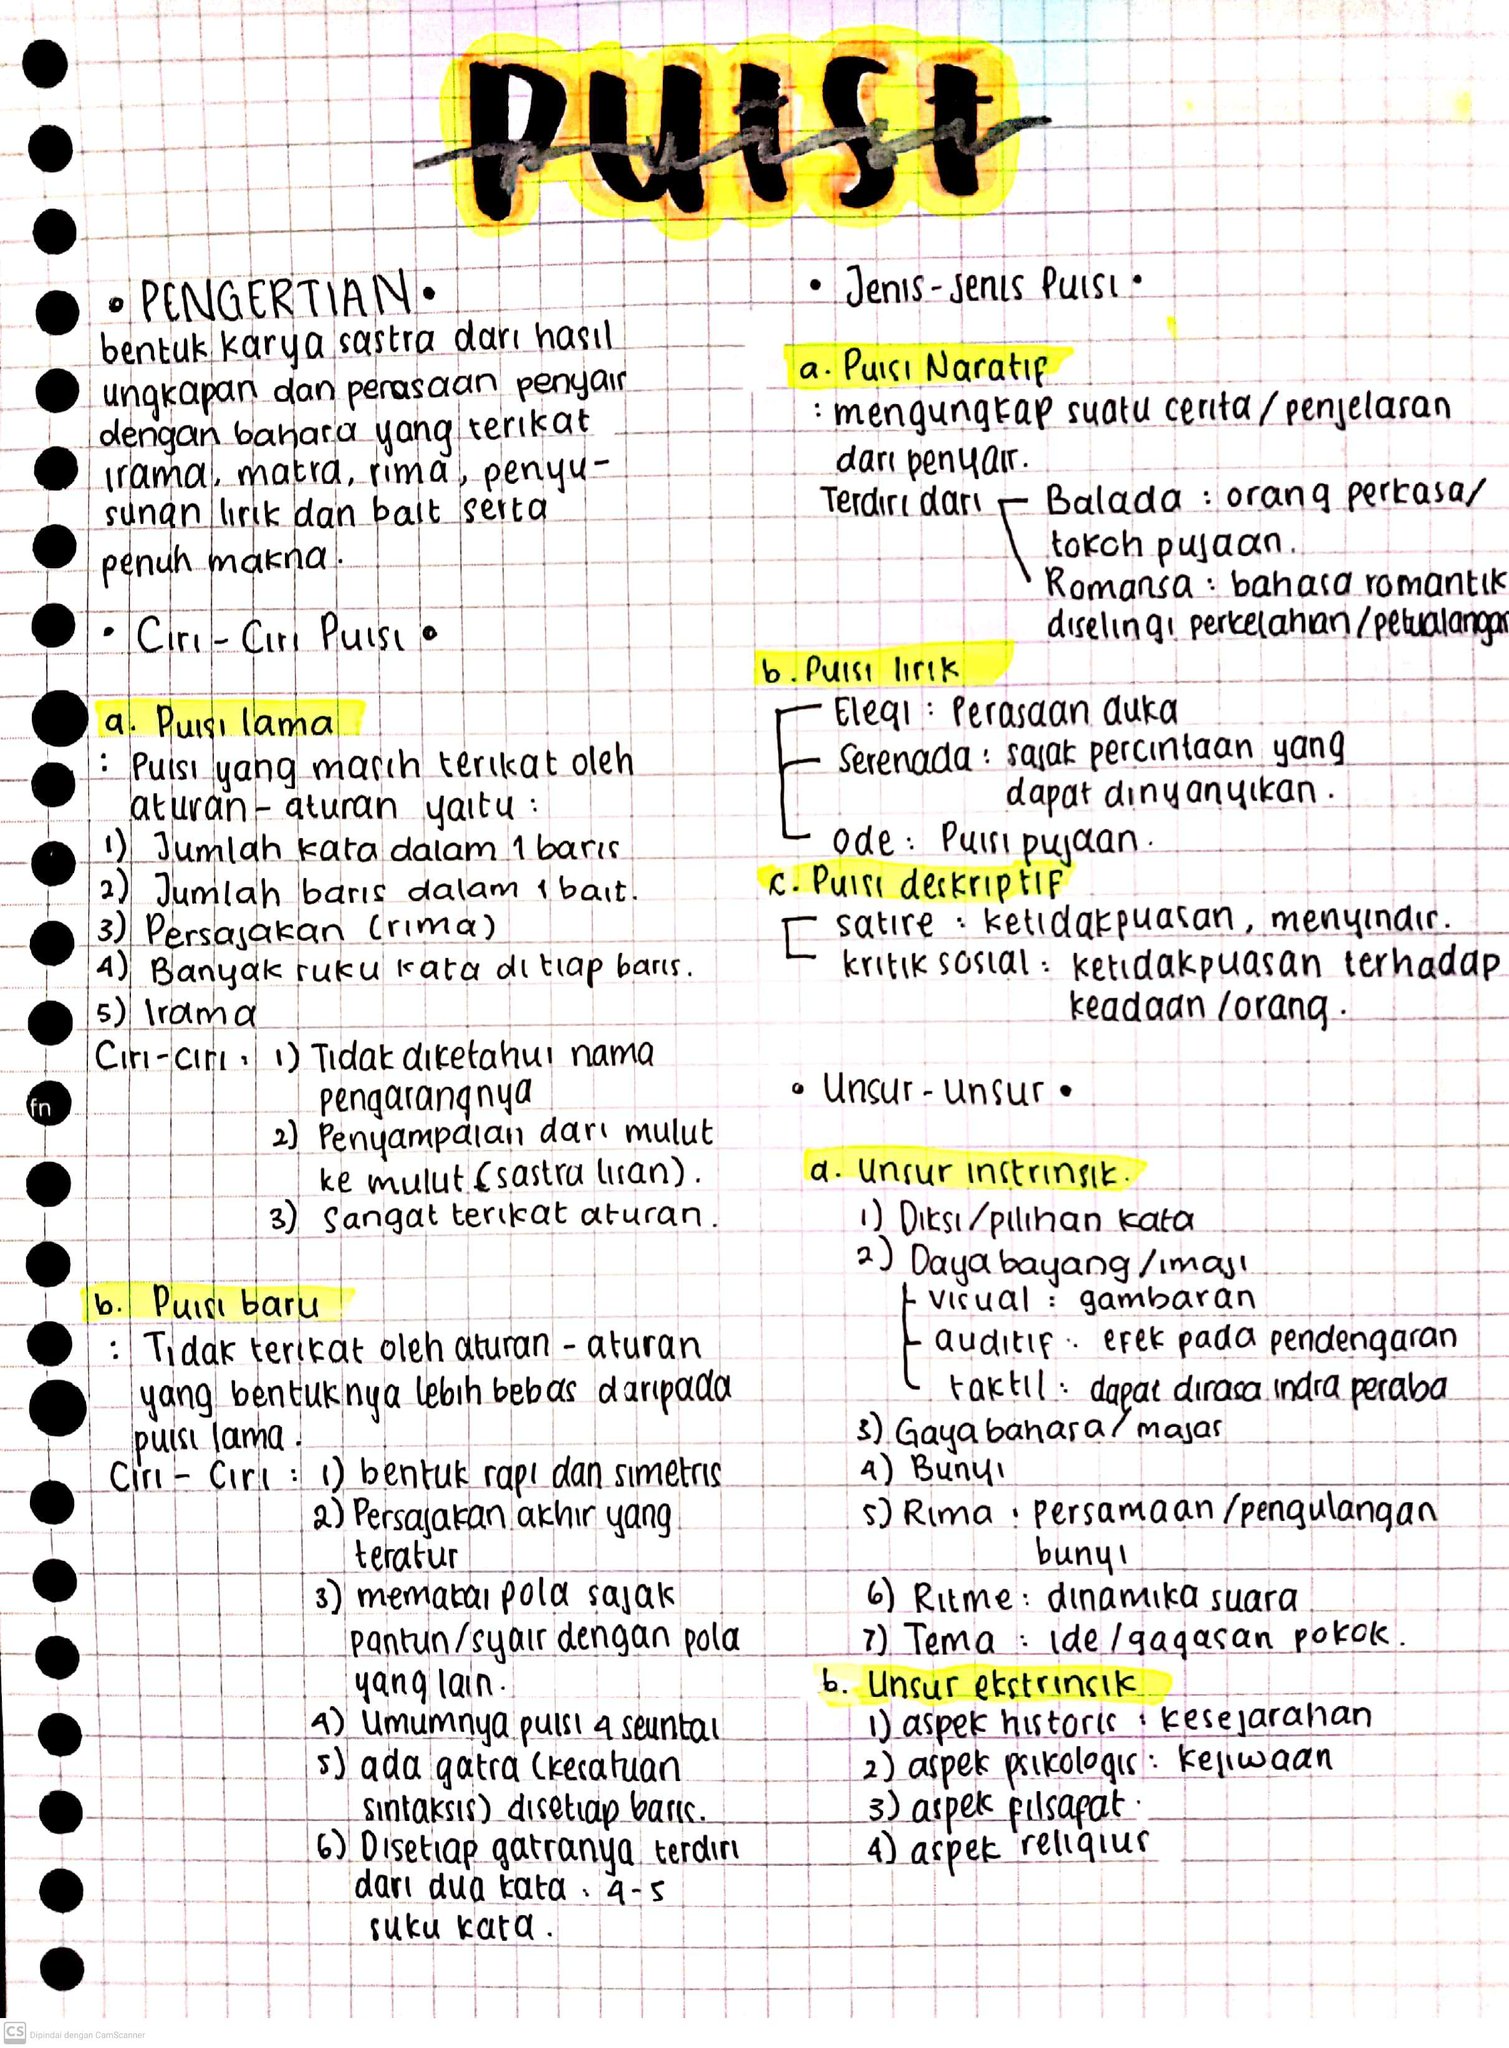 PUISI
puisi
• PENGERTIAN •
bentuk karya sastra dari hasil
ungkapan dan perasaan penyair
dengan bahasa yang terikat
irama, matra, rima, penyu-
sunan lirik dan bait serta
penuh makna.
• Ciri - Ciri Puisi •
a. Puisi lama
: Puisi yang masih terikat oleh
aturan - aturan yaitu :
1) Jumlah kata dalam 1 baris
2) Jumlah baris dalam 1 bait.
3) Persajakan (rima)
4) Banyak suku kata di tiap baris.
5) Irama
Ciri-ciri : 1) Tidak diketahui nama
pengarangnya
2) Penyampaian dari mulut
ke mulut (sastra lisan).
3) Sangat terikat aturan.
b. Puisi baru
: Tidak terikat oleh aturan - aturan
yang bentuknya lebih bebas daripada
puisi lama.
Ciri - Ciri : 1) bentuk rapi dan simetris
2) Persajakan akhir yang
teratur
3) memakai pola sajak
pantun/syair dengan pola
yang lain.
4) Umumnya puisi 4 seuntai
5) ada gatra (kesatuan
sintaksis) disetiap baris.
6) Disetiap gatranya terdiri
dari dua kata : 4-5
suku kata.
• Jenis - Jenis Puisi •
a. Puisi Naratif
: mengungkap suatu cerita / penjelasan
dari penyair.
Terdiri dari Balada : orang perkasa/
tokoh pujaan.
Romansa : bahasa romantik
diselingi perkelahian/petualangan
b. Puisi lirik
Elegi : Perasaan duka
Serenada : sajak percintaan yang
dapat dinyanyikan.
Ode : Puisi pujaan.
c. Puisi deskriptif
satire : ketidakpuasan, menyindir.
kritik sosial : ketidakpuasan terhadap
keadaan /orang.
• Unsur - unsur •
a. Unsur instrinsik.
1) Diksi/pilihan kata
2) Daya bayang /imaji
visual : gambaran
auditif : efek pada pendengaran
taktil : dapat dirasa indra peraba
3) Gaya bahasa/majas
4) Bunyi
5) Rima : persamaan /pengulangan
bunyi
6) Ritme : dinamika suara
7) Tema : ide/gagasan pokok.
b. Unsur ekstrinsik
1) aspek historis : kesejarahan
2) aspek psikologis : kejiwaan
3) aspek filsafat.
4) aspek religius
fn
CS Dipindai dengan CamScanner